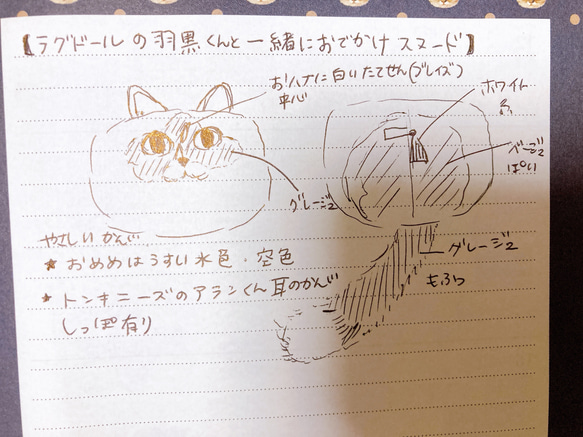 【ラグドールの羽黒くんと一緒におでかけ スヌード】
おハナに白いたてせん(ブレイズ)
中心
ホワイト
ベージュ
ぱい
グレージュ
グレージュ
もふっ
やさしいかんじ
★ おめめはうすい水色・空色
★ トンキニーズのアランくん耳のかんじ
しっぽ有り